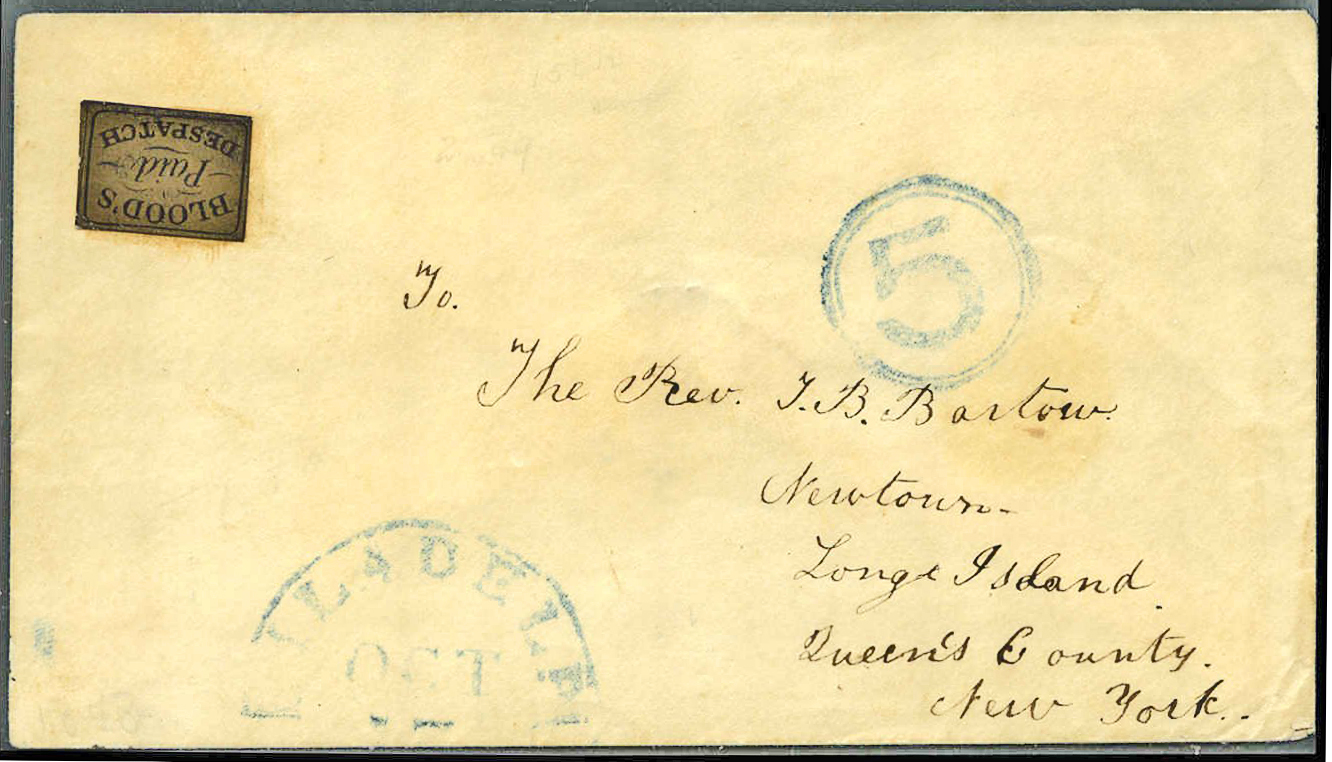 BLOOD'S
Paid
DESPATCH
5
To.
The Rev. T.B. Bartow.
Newtown-
Long Island.
Queen's County.
New York.
ILADELP
OCT